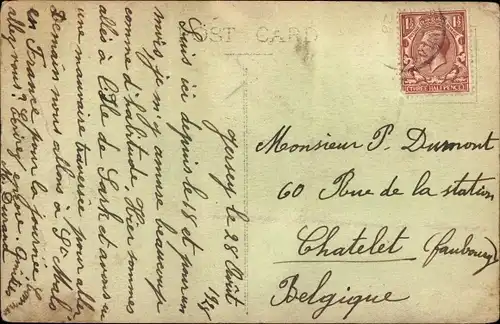 POST CARD
1½ 1½
THREE HALFPENCE
Jersey le 28 Août
1928
Suis ici depuis le 18 et pour un
mois, je m'y amuse beaucoup
comme d'habitude. Hier sommes
allés à l'île de Sark et avons eu
une mauvaise traversée pour aller
Demain nous allons à St Malo
en France pour la journée
allez vous? Ecrivez
Durand
Monsieur P. Dumont
60 Rue de la station
Chatelet (faubourg)
Belgique